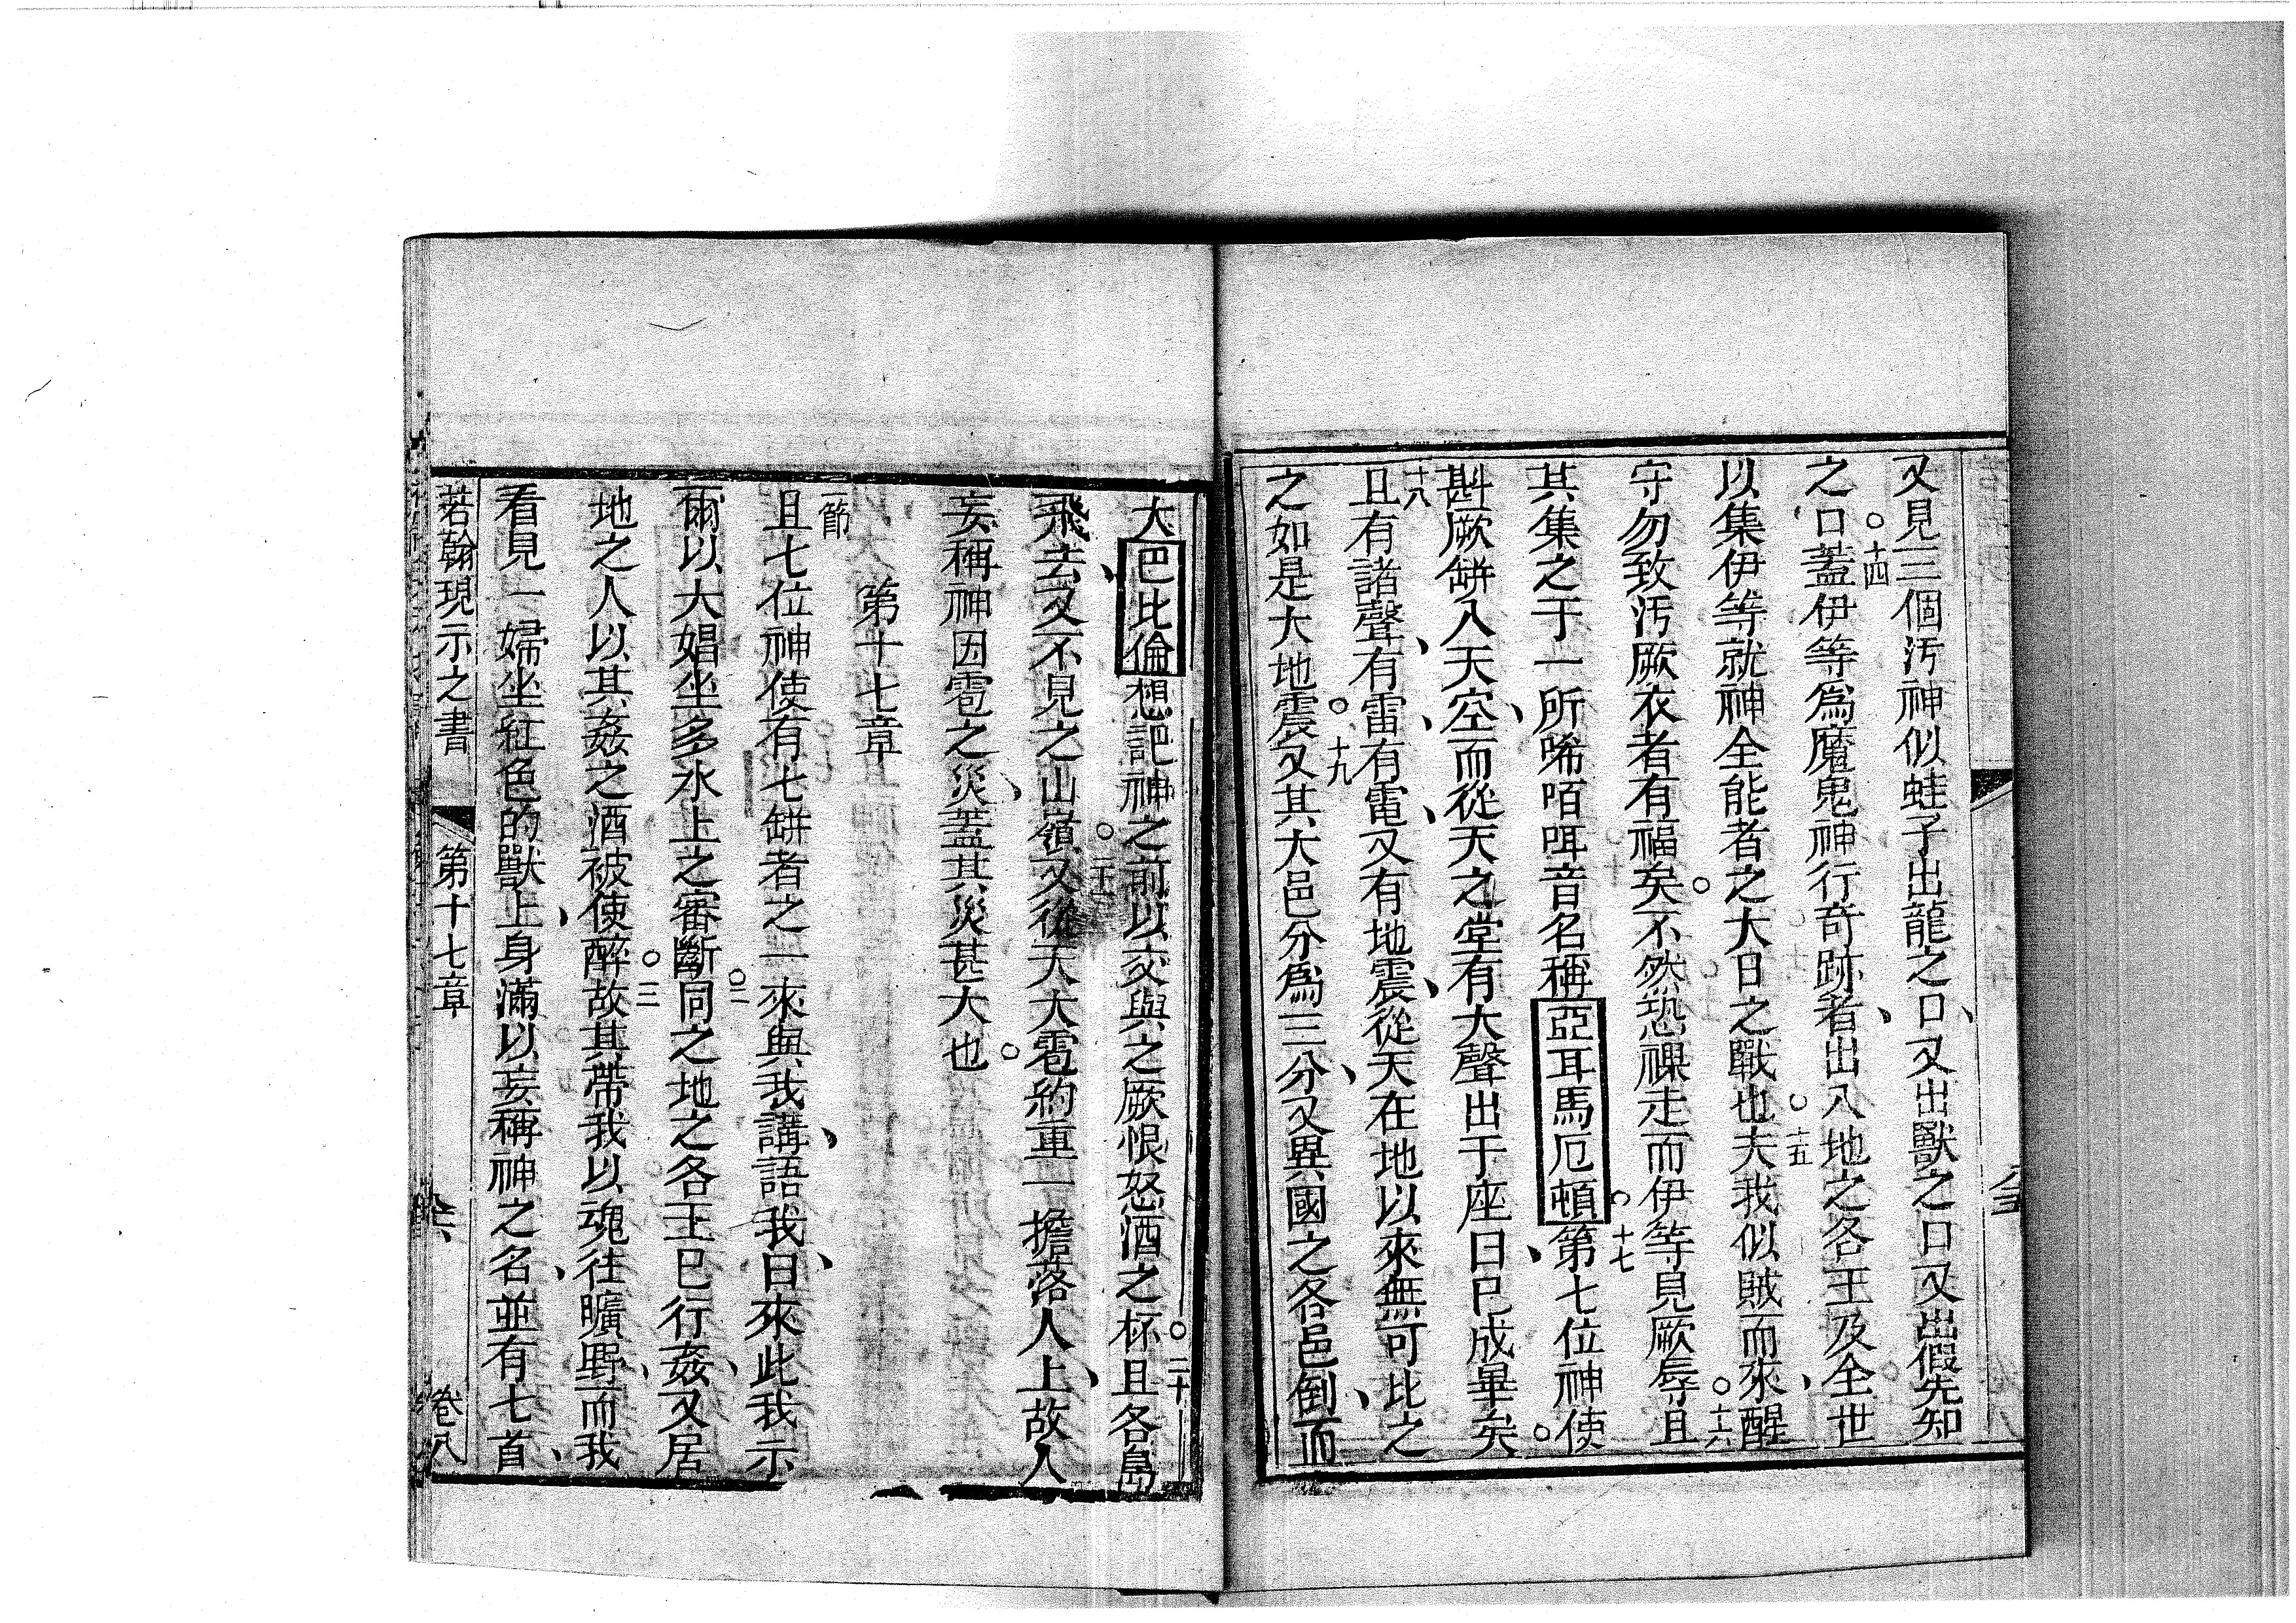 又見三個汚神似蛙子出龍之口、又出獸之口又出假先知
之口○十四蓋伊等爲魔鬼神行竒跡者、出入地之各王及全世
以集伊等就神全能者之大日之戰也○十五夫我似賊而來、醒
守勿致汚厥衣者有福矣○不然恐祼走而伊等見厥辱○十六且
其集之于一所唏咟咡音名稱亞耳馬厄頓○十七第七位神使
斟厥缾入天空、而從天之堂有大聲出于座曰、已成畢矣○
十八且有諸聲、有雷、有電、又有地震、從天在地以來無可比之
之如是大地震○十九又其大邑分爲三分、又異國之各邑倒、而
大巴比倫想記神之前以交與之厥恨怒酒之杯○二十且各島
飛去、又不見之山嶺○二十一又從天大雹約重一擔落人上、故人
妄稱神因雹之災、蓋其災甚大也○
第十七章
一節且七位神使有七缾者之一來與我講、語我、曰來此我示
爾以大娼坐多水上之審斷○二同之地之各王已行姦、又居
地之人以其姦之酒被使醉○三故其帶我以魂往曠野、而我
看見一婦坐紅色的獸上、身滿以妄稱神之名、並有七首、
若翰現示之書 第十七章 卷八